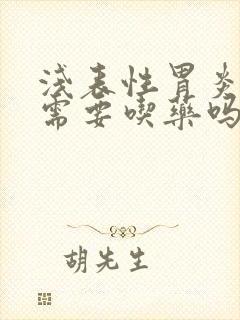 浅表性胃炎
需要喫藥吗
胡先生